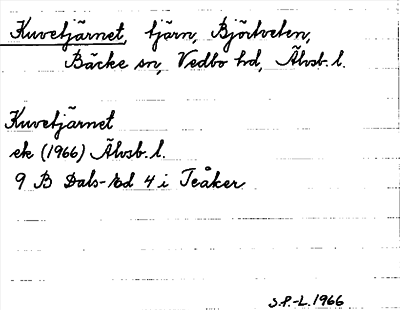 Kuvetjärnet, tjärn, Björtveten,
Bäcke sn, Vedbo hd, Älvsb. l.
Kuvetjärnet
ek (1966) Älvsb. l.
9 B Dals-Ed 4 i Teåker
S.P.-L. 1966